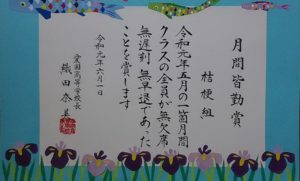 月間皆勤賞
桔梗組
令和元年五月の一箇月間
クラスの全員が無欠席
無遅刻 無早退であった
ことを賞します
令和元年六月一日
愛国高等学校長
織田奈美